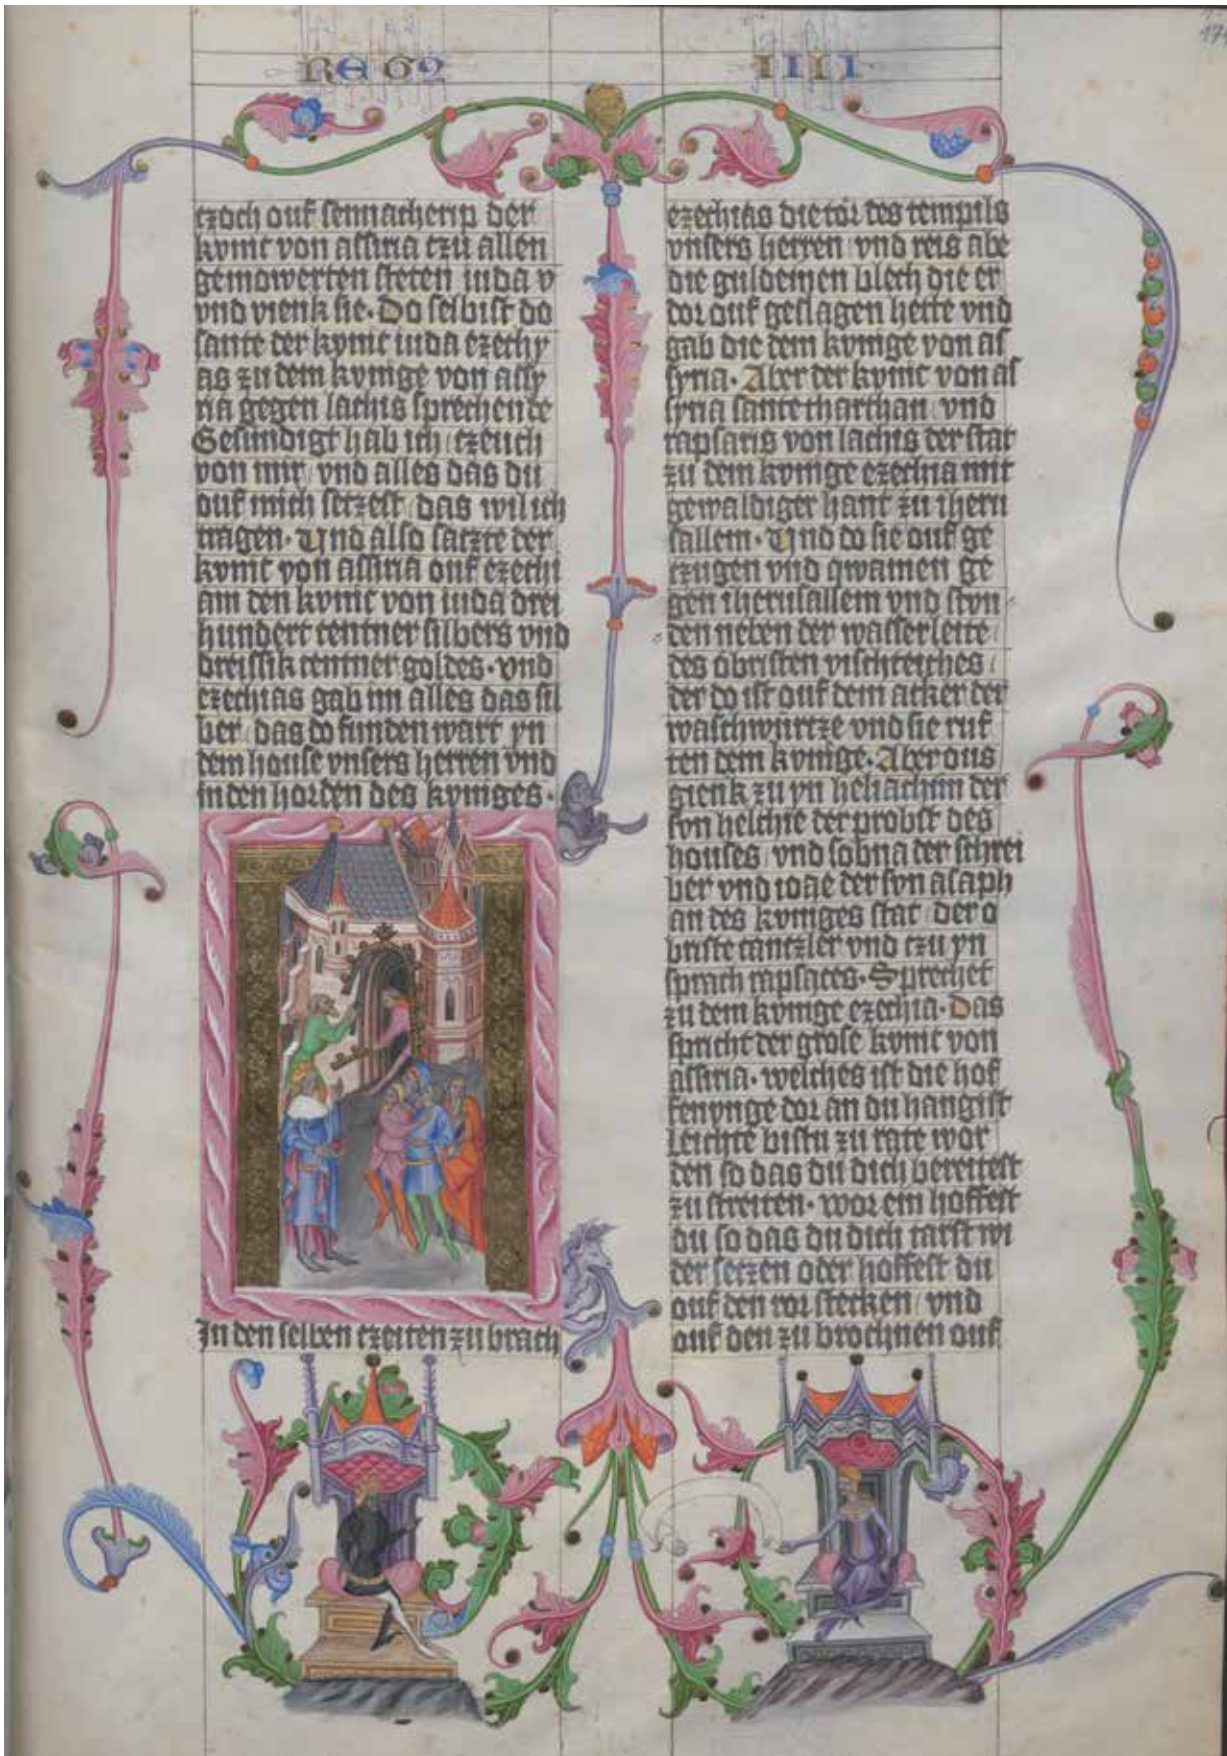 REG9 IIII
17
tzoch ouf sennacherip der
kvnic von assiria tzu allen
gemowerten steten iuda v
vnd vienk sie. Do selbist do
sante der kvnic iuda ezechy
as zu dem kvnige von assy
ria gegen lachis sprechende
Gesundigt hab ich tzeuch
von mir vnd alles das du
ouf mich setzest das wil ich
tragen. Und also satzte der
kvnic von assiria ouf ezechi
am den kvnic von iuda drei
hundert centner silbers vnd
dreissik centner goldes. vnd
ezechias gab im alles das sil
ber das do funden wart yn
dem house vnsers herren vnd
in den horden des kvniges.
In den selben tzeiten zu brach
ezechias die tor des tempils
vnsers herren vnd reis abe
die guldeinen blech die er
dor ouf geslagen hette vnd
gab die dem kvnige von as
syria. Aber der kvnic von as
syria sante tharthan vnd
rapsaris von lachis der stat
zu dem kvnige ezechia mit
gewaldiger hant zu iheru
sallem. Und do sie ouf ge
tzugen vnd qwamen ge
gen iherusallem vnd stvn
den neben der wasserleite
des obristen vischteiches
der do ist ouf dem acker der
waschwurtze vnd sie ruf
ten dem kvnige. Aber ous
gienk zu yn heliachim der
svn helchie der probst des
houses vnd sobna der schrei
ber vnd ioae der svn asaph
an des kvniges stat der o
briste cantzler vnd tzu yn
sprach rapsaces. Sprechet
zu dem kvnige ezechia. Das
spricht der grose kvnic von
assiria. welches ist die hof
fenvnge dor an du hangist
Leichte bistu zu rate wor
den so das du dich bereitest
zu streiten. wor ein hoffest
du so das du dich tarst wi
der setzen oder hoffest du
ouf den ror stecken vnd
ouf den zu brochnen ouf